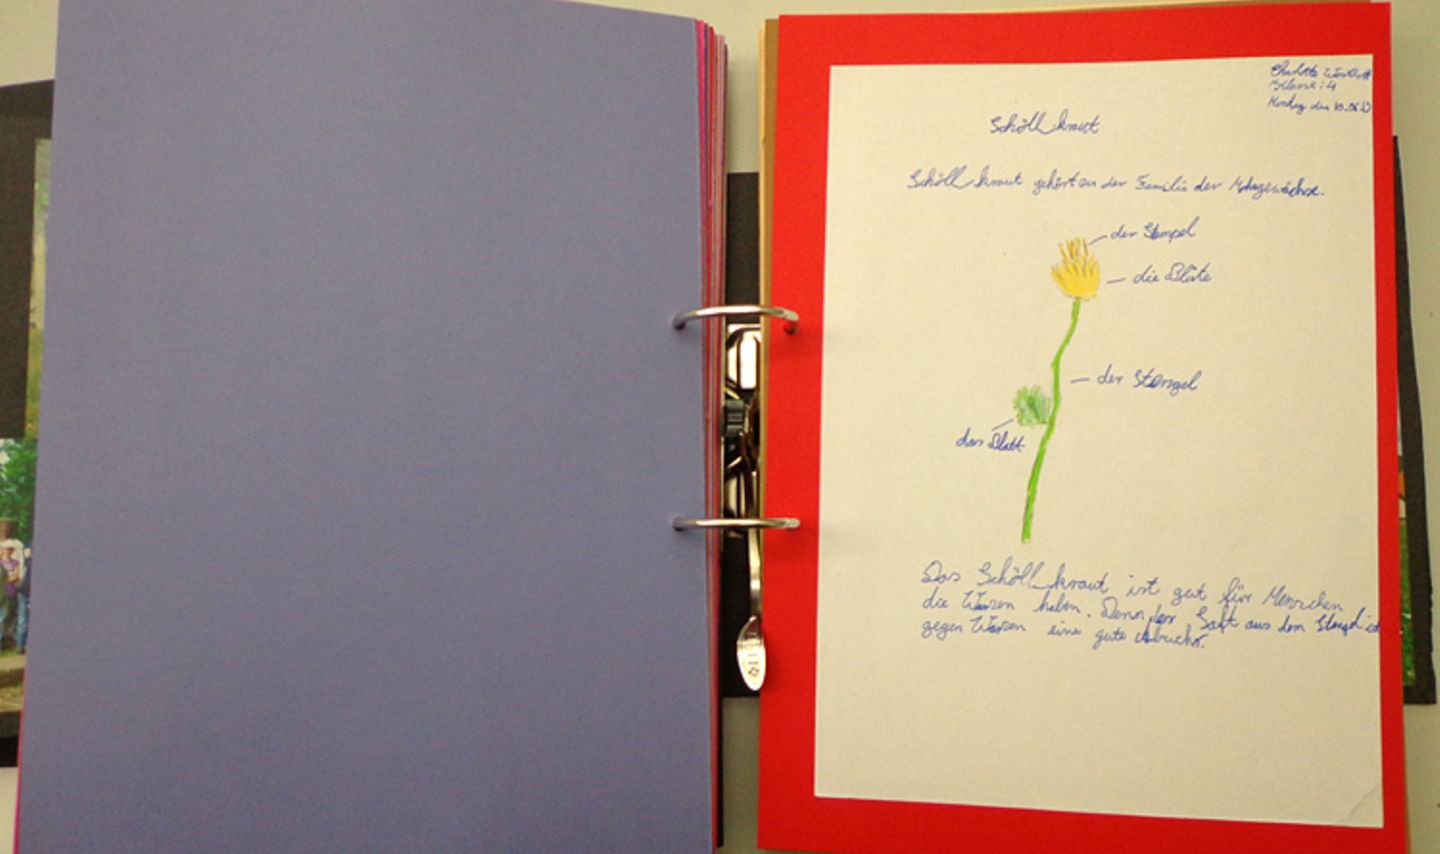 Charlotte
Klasse: 4
Montag den 10.06.13
Schöllkraut
Schöllkraut gehört zu der Familie der Mohngewächse.
der Stempel
die Blüte
der Stengel
das Blatt
Das Schöllkraut ist gut für Menschen
die Warzen haben. Denn der Saft aus dem Stengel ist
gegen Warzen eine gute